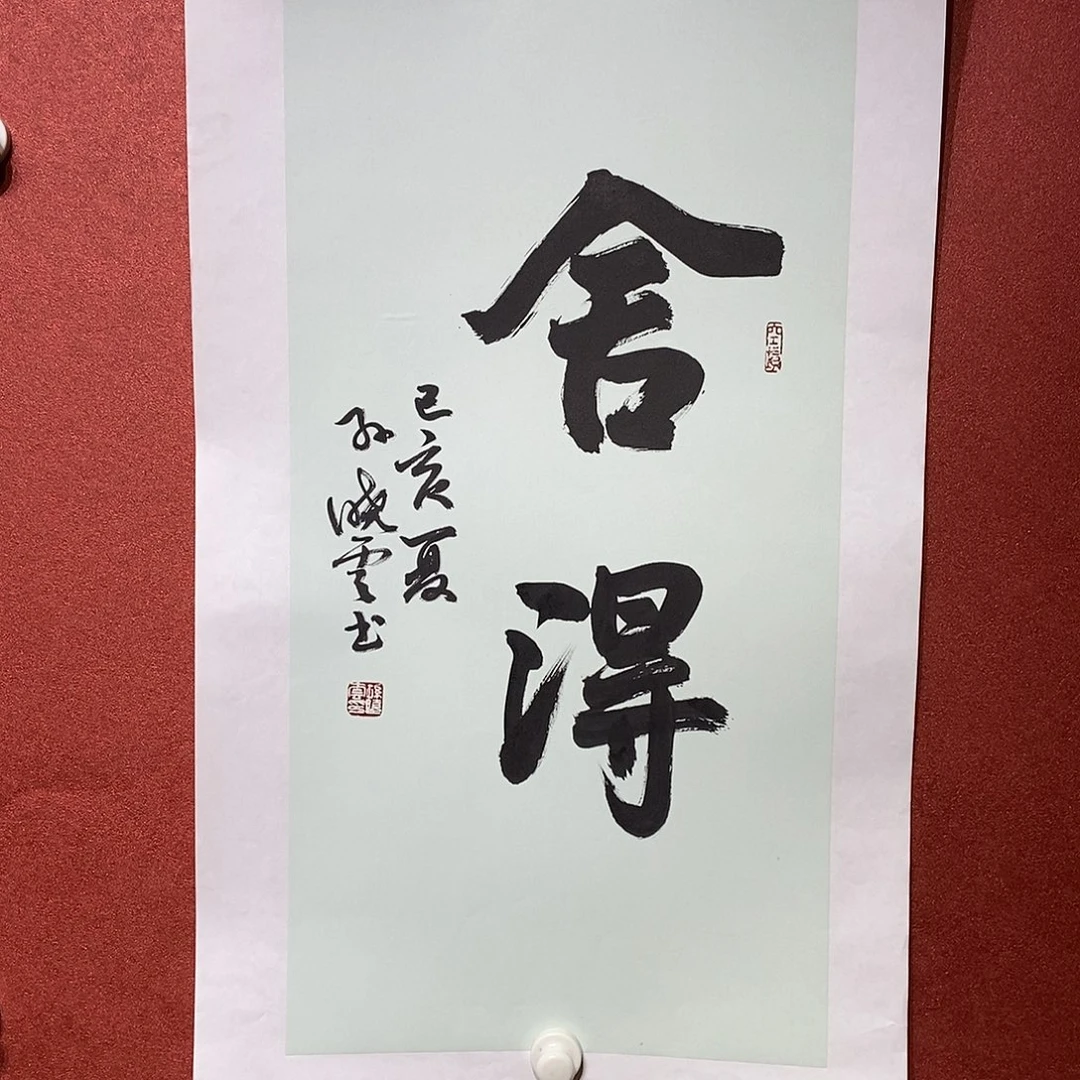 舍得
己亥夏
孙晓云书